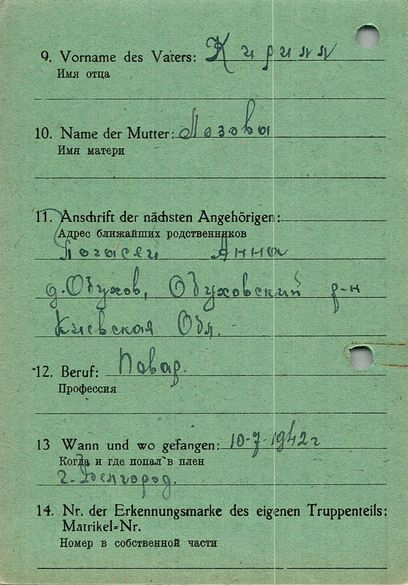 9. Vorname des Vaters: Кирилл
Имя отца
10. Name der Mutter: Лозовы
Имя матери
11. Anschrift der nächsten Angehörigen:
Адрес ближайших родственников
Анны
д. Обухов, Обуховский р-н
Киевская Обл.
12. Beruf: Повар.
Профессия
13 Wann und wo gefangen: 10-7-1942г
Когда и где попал в плен
г. Белгород.
14. Nr. der Erkennungsmarke des eigenen Truppenteils:
Matrikel-Nr.
Номер в собственной части